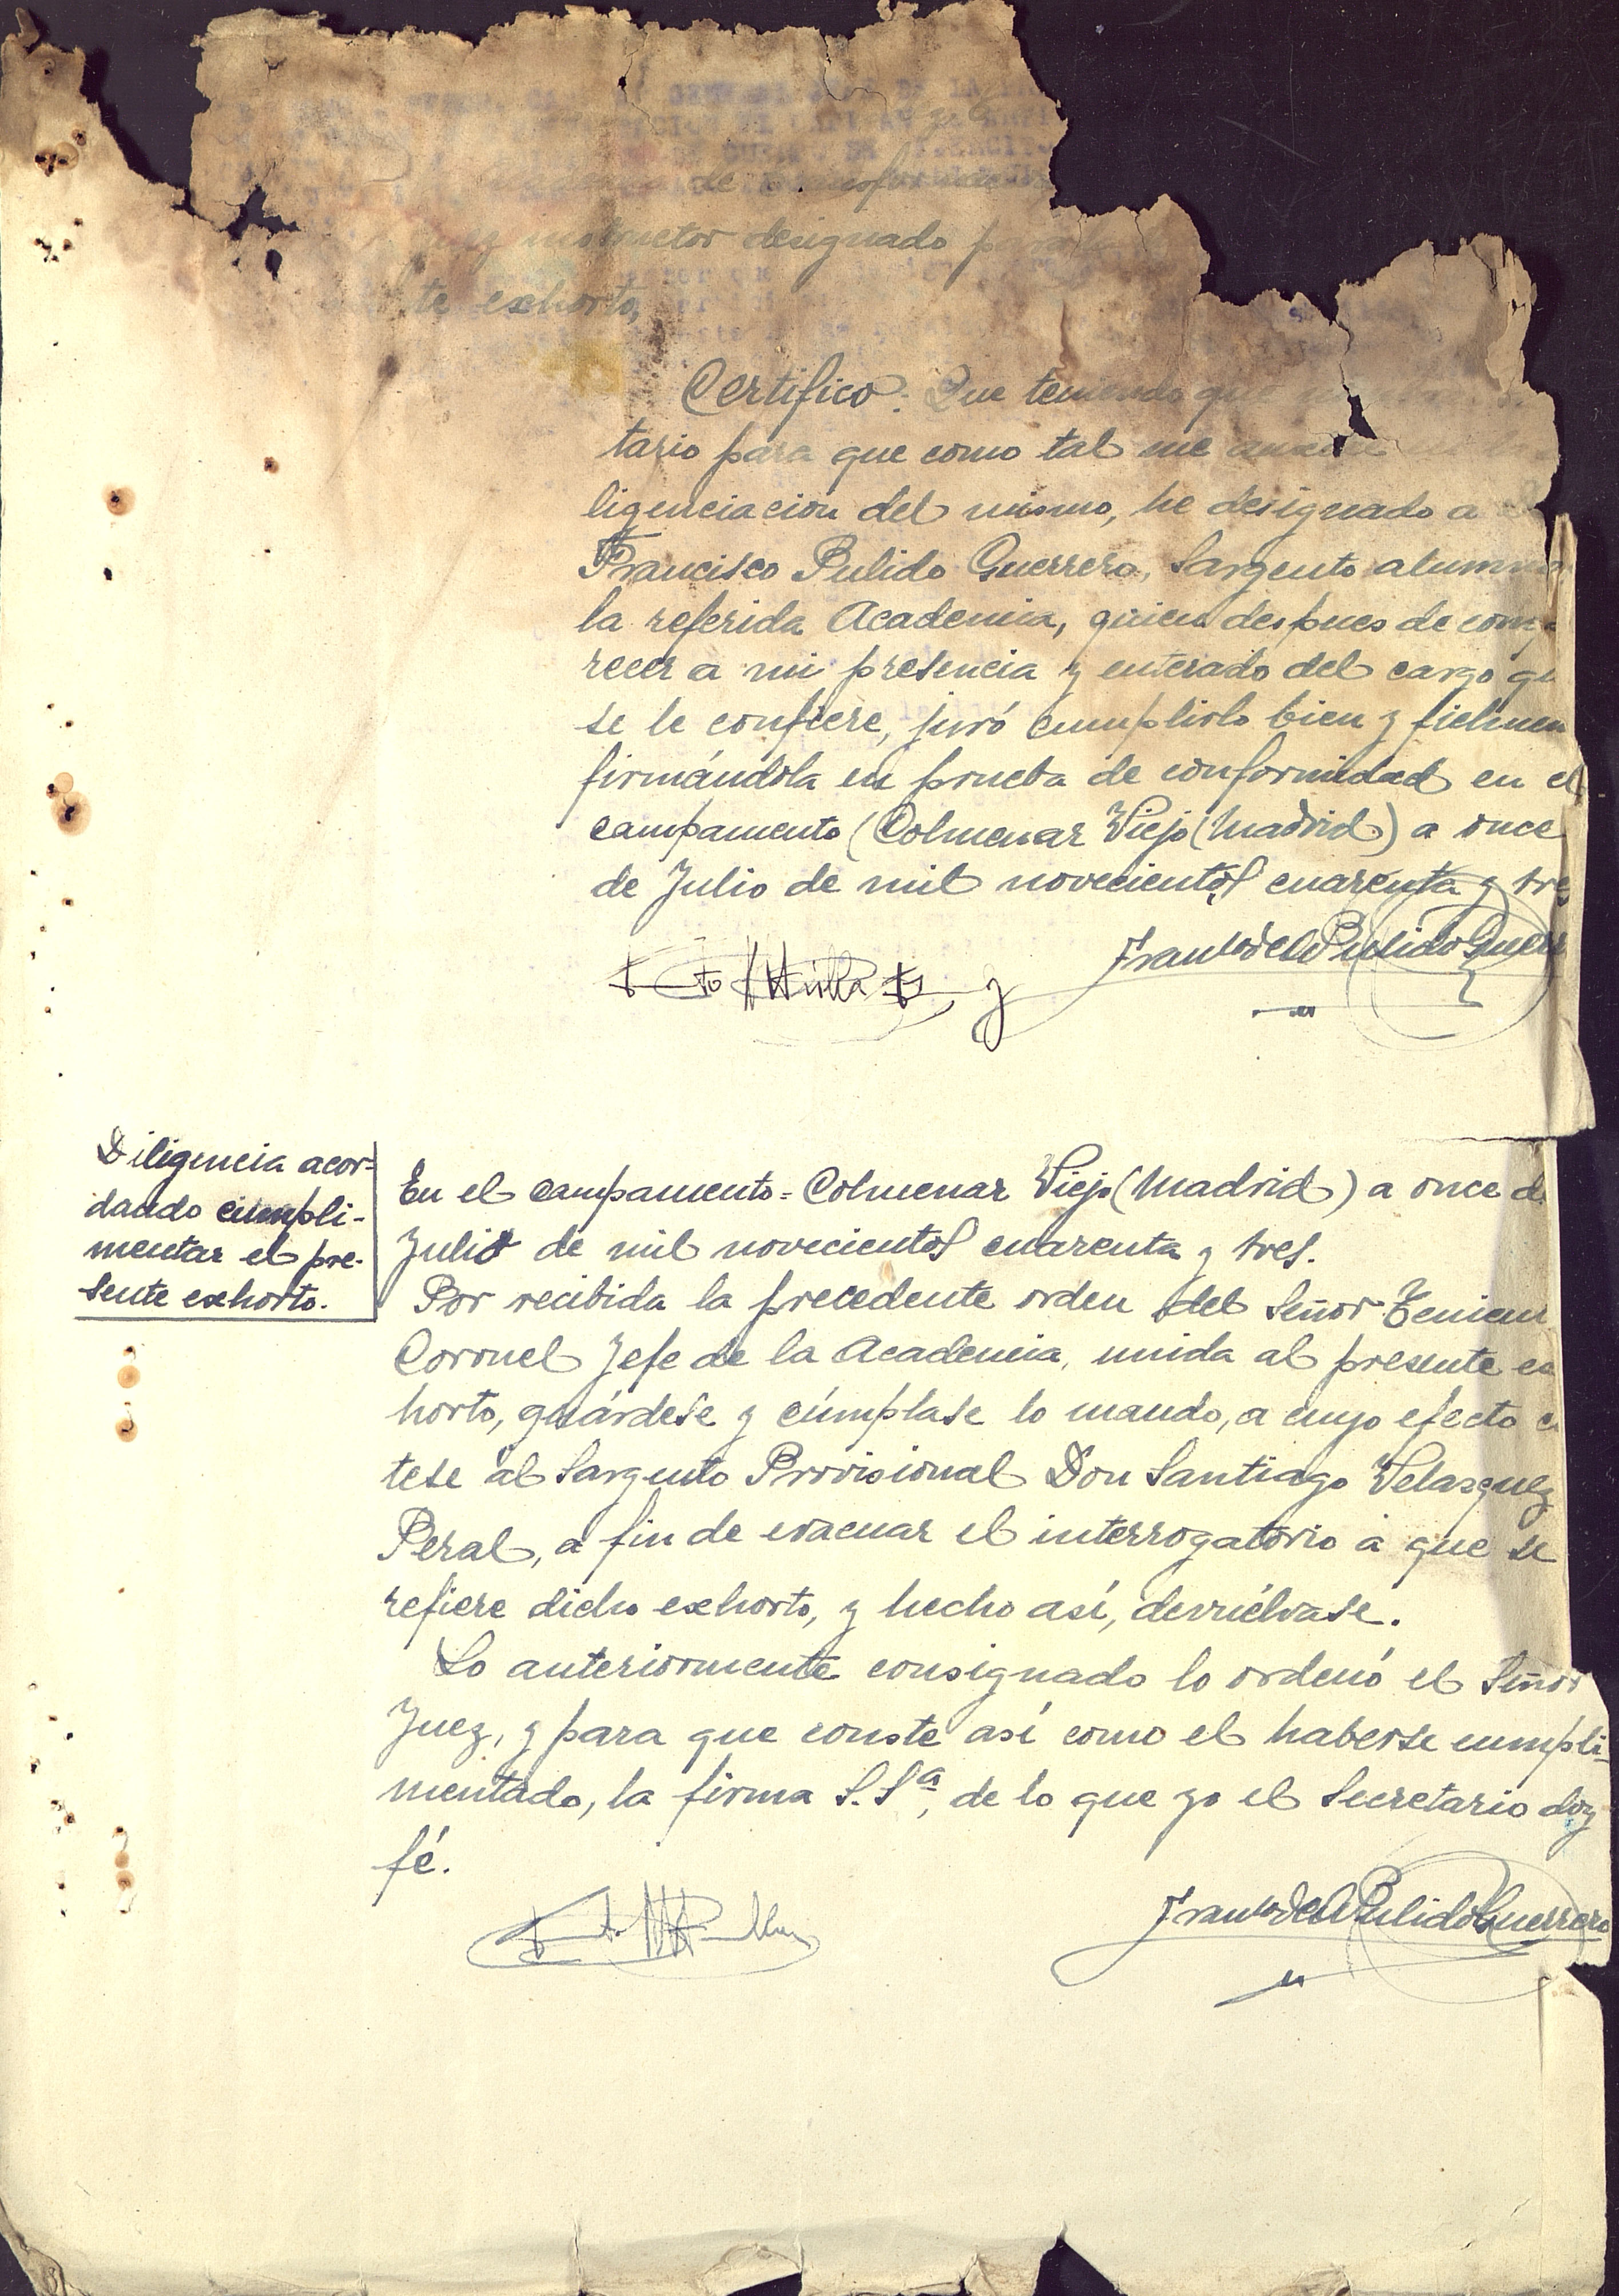 de Transformación
juez instructor designado para
te exhorto,
Certifico: Que teniendo que
tario para que como tal me
ligenciacion del mismo, he designado a
Francisco Pulido Guerrero, Sargento alumno
la referida Academia, quien despues de comp
recer a mi presencia y enterado del cargo qu
se le confiere, juró cumplirlo bien y fielmen
firmándola en prueba de conformidad en el
campamento (Colmenar Viejo (Madrid) a once
de Julio de mil novecientos cuarenta y tre
Pulido Guerr
Diligencia acor-
dando cumpli-
mentar el pre-
sente exhorto.
En el campamento = Colmenar Viejo (Madrid) a once d
Julio de mil novecientos cuarenta y tres.
Por recibida la precedente orden del Señor Tenien
Coronel Jefe de la Academia, unida al presente ex
horto, guárdese y cúmplase lo mando, a cuyo efecto c
tese al Sargento Provisional Don Santiago Velazquez
Peral, a fin de evacuar el interrogatorio a que se
refiere dicho exhorto, y hecho así, devuélvase.
Lo anteriormente consignado lo ordenó el Señor
Juez, y para que conste así como el haberse cumpli-
mentado, la firma S.Sª, de lo que yo el Secretario doy
fé.
Pulido Guerrero